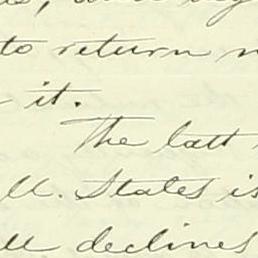 to return
it.
The last
U. States is
declines